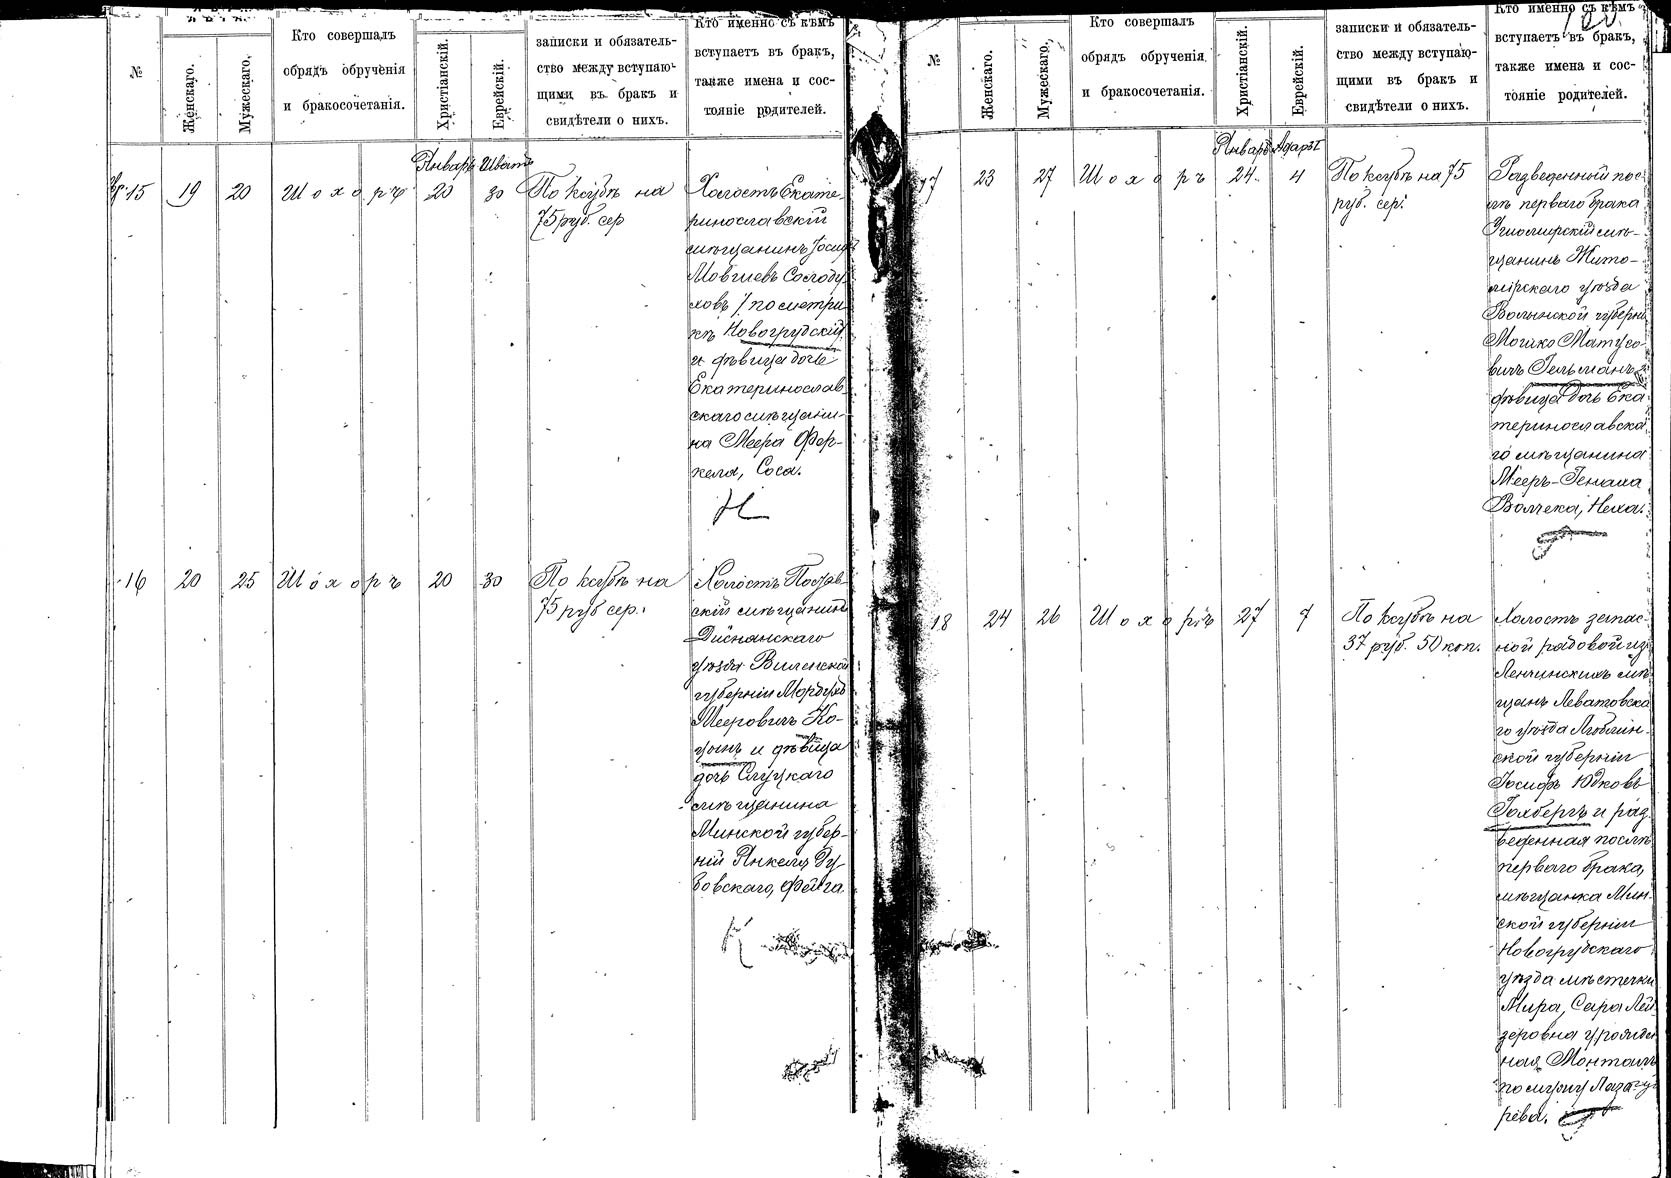 №
Женскаго.
Мужескаго.
Кто совершалъ
обрядъ обрученія
и бракосочетанія.
Христіанскій.
Еврейскій.
записки и обязатель-
ство между вступаю-
щими въ бракъ и
свидѣтели о нихъ.
Кто именно съ кѣмъ
вступаетъ въ бракъ,
также имена и сос-
тояніе родителей.
Январь Шватъ
15 19 20 Шохоръ 20 30
По ксубѣ на
75 руб. сер
Холостъ Екате-
ринославскій
мѣщанинъ Іосифъ
Мовшевъ Солоду-
ховъ / по метри-
кѣ Новогрудскій/
и дѣвица дочь
Екатеринослав-
скаго мѣщани-
на Меера Фер-
келя, Соса.
Н
16 20 25 Шохоръ 20 30
По ксубѣ на
75 руб сер.
Холостъ Постав-
скій мѣщанинъ
Диснянскаго
уѣзда Виленской
губерніи Мордухъ
Мееровичъ Ко-
цынъ и дѣвица
дочь Слуцкаго
мѣщанина
Минской губер-
ніи Янкеля Ду-
бовскаго, Фейга.
К
№
Женскаго.
Мужескаго.
Кто совершалъ
обрядъ обрученія
и бракосочетанія.
Христіанскій.
Еврейскій.
записки и обязатель-
ство между вступаю-
щими въ бракъ и
свидѣтели о нихъ.
Кто именно съ кѣмъ
вступаетъ въ бракъ,
также имена и сос-
тояніе родителей.
Январь Адаръ I
17 23 27 Шохоръ 24 4
По ксубѣ на 75
руб. сер.
Разведенный пос-
лѣ перваго брака
мѣ-
щанинъ Жито-
мірскаго уѣзда
Волынской губерніи
Мошко Матусо-
вичъ Гельманъ и
дѣвица дочь Ека-
теринославска-
го мѣщанина
Мееръ-Генаха
Волчека, Неха.
18 24 26 Шохоръ 27 7
По ксубѣ на
37 руб. 50 коп.
Холостъ запас-
ной рядовой изъ
Ленчинскихъ мѣ-
щанъ Левартовска-
го уѣзда Люблин-
ской губерніи
Іосифъ Юдковъ
Голбергъ и раз-
веденная послѣ
перваго брака,
мѣщанка Мин-
ской губерніи
Новогрудскаго
уѣзда мѣстечка
Мира, Сара Лей-
зеровна урожден-
ная
по мужу Лаза-
рева.